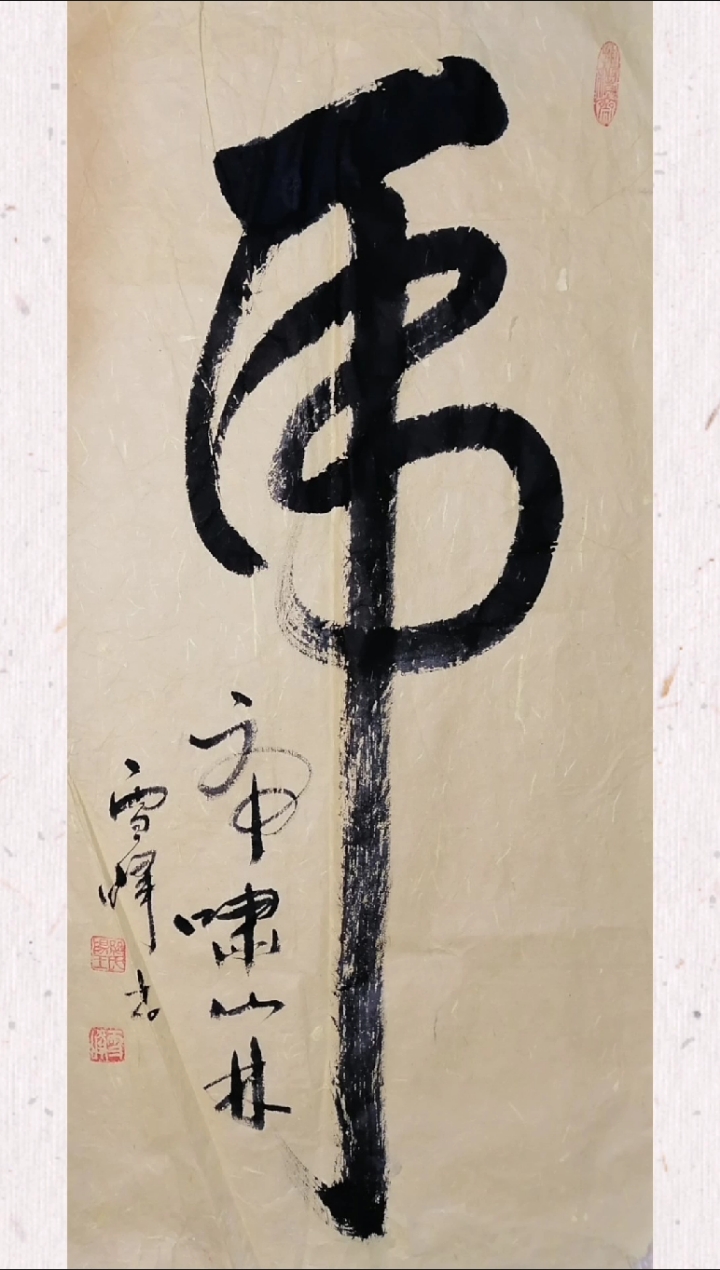 虎
虎啸山林
雪峰书